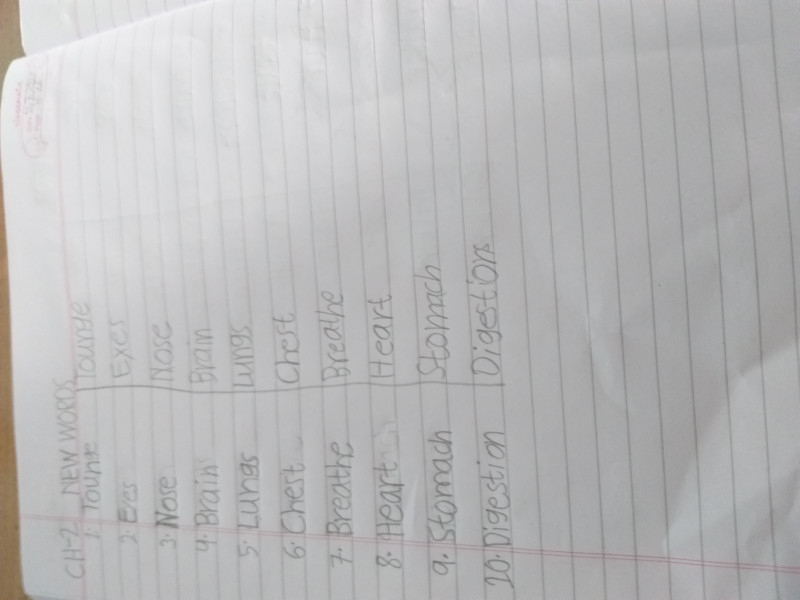 CH-2 NEW WORDS
1. Tounge Tounge
2. Eyes Eyes
3. Nose Nose
4. Brain Brain
5. Lungs Lungs
6. Chest Chest
7. Breathe Breathe
8. Heart Heart
9. Stomach Stomach
10. Digestion Digestion